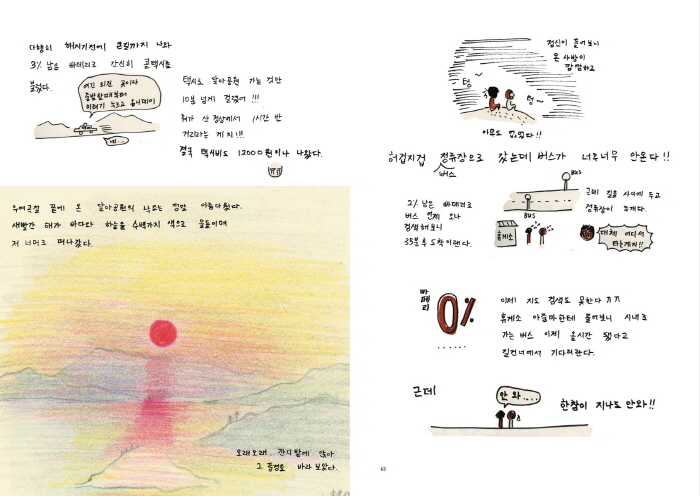 다행히 해지기전에 큰길까지 나와
3% 남은 빠떼리로 간신히 콜택시를
불렀다.
여긴 외진 곳이라
출발할때부터
미터기 누르고 옵니데이
네...
택시로 달아공원 가는 것만
10분 넘게 걸렸어!!!
뭐가 산 정상에서 1시간 반
거리라는 게지!!!
결국 택시비도 12000원이나 나왔다.
ㅠㅠ
우여곡절 끝에 온 달아공원의 낙조는 정말 아름다웠다.
새빨간 해가 바다와 하늘을 수백가지 색으로 물들이며
저 너머로 떠나갔다.
오래오래, 잔디밭에 앉아
그 풍경을 바라 보았다.
정신이 들어보니
온 사방이
깜깜하고
텅~
텅~
아무도 없었다!!
허겁지겁 정류장으로 갔는데 버스가 너무너무 안온다!!
버스
2% 남은 빠떼리로
버스 언제 오나
검색해보니
35분후 도착이란다.
BUS
BUS
근데 길을 사이에 두고
정류장이 두개다.
휴게소
대체 어디서
타는게지!!
빠떼리
0%
......
이제 지도 검색도 못한다 ㅠㅠ
휴게소 아줌마한테 물어보니 시내로
가는 버스 이제 올시간 됐다고
길건너에서 기다리란다.
근데
안 와....
한참이 지나도 안와!!
63